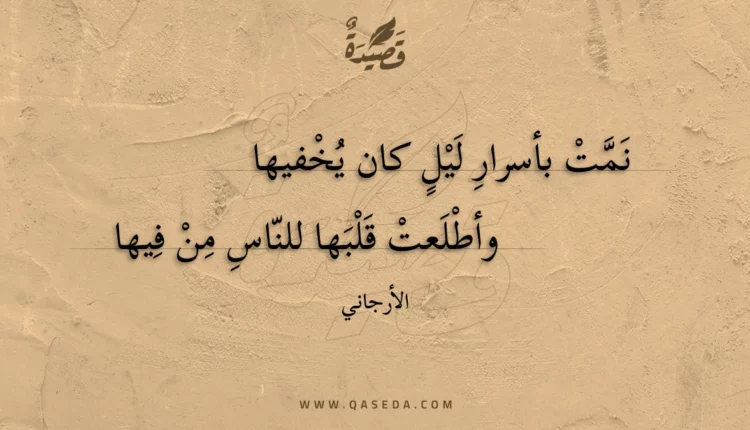 قَصِيْدَةٌ
نَمَّتْ بأسرارِ لَيْلٍ كان يُخْفيها
وأطْلَعتْ قَلْبَها للنّاسِ مِنْ فِيها
الأرجاني
WWW.QASEDA.COM